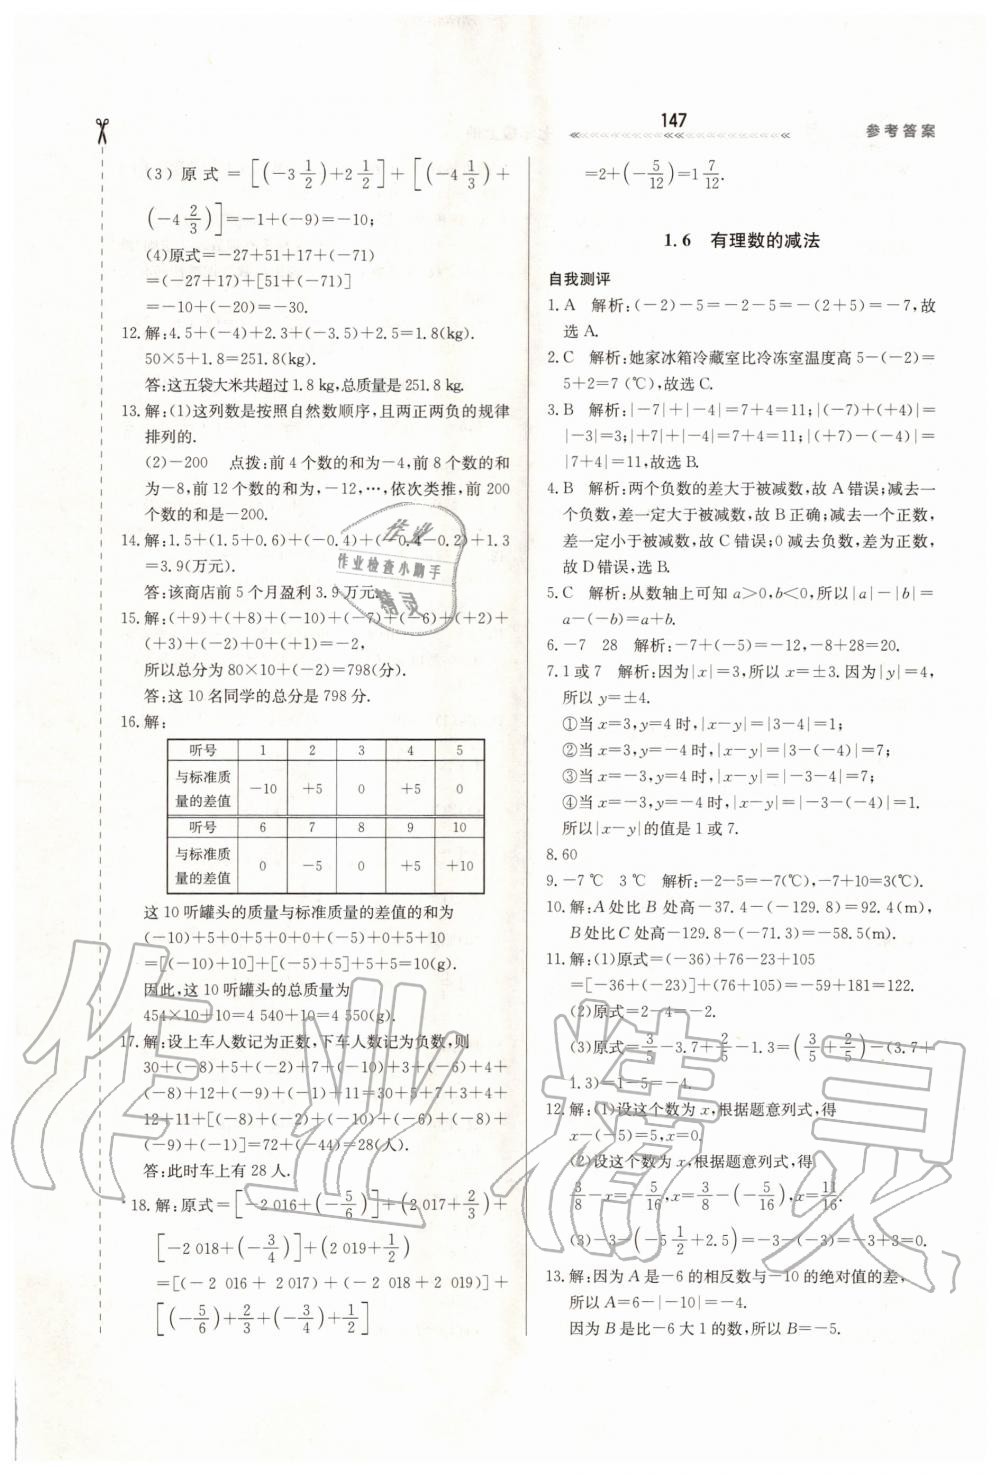 147
参考答案
(3)原式=[(-3 1/2)+2 1/2]+[(-4 1/3)+
(-4 2/3)]=-1+(-9)=-10;
(4)原式=-27+51+17+(-71)
=(-27+17)+[51+(-71)]
=-10+(-20)=-30.
12.解:4.5+(-4)+2.3+(-3.5)+2.5=1.8(kg).
50×5+1.8=251.8(kg).
答:这五袋大米共超过1.8 kg,总质量是251.8 kg.
13.解:(1)这列数是按照自然数顺序,且两正两负的规律
排列的.
(2)-200 点拨:前4个数的和为-4,前8个数的和
为-8,前12个数的和为,-12,…,依次类推,前200
个数的和是-200.
14.解:1.5+(1.5+0.6)+(-0.4)+(-0.4-0.2)+1.3
=3.9(万元).
答:该商店前5个月盈利3.9万元.
15.解:(+9)+(+8)+(-10)+(-7)+(-6)+(+2)+
(+3)+(-2)+0+(+1)=-2,
所以总分为80×10+(-2)=798(分).
答:这10名同学的总分是798分.
16.解:
听号 1 2 3 4 5
与标准质
量的差值 -10 +5 0 +5 0
听号 6 7 8 9 10
与标准质
量的差值 0 -5 0 +5 +10
这10听罐头的质量与标准质量的差值的和为
(-10)+5+0+5+0+0+(-5)+0+5+10
=[(-10)+10]+[(-5)+5]+5+5=10(g).
因此,这10听罐头的总质量为
454×10+10=4 540+10=4 550(g).
17.解:设上车人数记为正数,下车人数记为负数,则
30+(-8)+5+(-2)+7+(-10)+3+(-6)+4+
(-8)+12+(-9)+11+(-1)=30+5+7+3+4+
12+11+[(-8)+(-2)+(-10)+(-6)+(-8)+
(-9)+(-1)]=72+(-44)=28(人).
答:此时车上有28人.
18.解:原式=[-2 016+(-5/6)]+(2 017+2/3)+
[-2 018+(-3/4)]+(2 019+1/2)
=[(-2 016+2 017)+(-2 018+2 019)]+
[(-5/6)+2/3+(-3/4)+1/2]
=2+(-5/12)=1 7/12.
1.6 有理数的减法
自我测评
1.A 解析:(-2)-5=-2-5=-(2+5)=-7,故
选A.
2.C 解析:她家冰箱冷藏室比冷冻室温度高5-(-2)=
5+2=7(℃),故选C.
3.B 解析:|-7|+|-4|=7+4=11;|(-7)+(+4)|=
|-3|=3;|+7|+|-4|=7+4=11;|(+7)-(-4)|=
|7+4|=11,故选B.
4.B 解析:两个负数的差大于被减数,故A错误;减去一
个负数,差一定大于被减数,故B正确;减去一个正数,
差一定小于被减数,故C错误;0减去负数,差为正数,
故D错误,选B.
5.C 解析:从数轴上可知a>0,b<0,所以|a|-|b|=
a-(-b)=a+b.
6.-7 28 解析:-7+(-5)=-12,-8+28=20.
7.1或7 解析:因为|x|=3,所以x=±3.因为|y|=4,
所以y=±4.
①当x=3,y=4时,|x-y|=|3-4|=1;
②当x=3,y=-4时,|x-y|=|3-(-4)|=7;
③当x=-3,y=4时,|x-y|=|-3-4|=7;
④当x=-3,y=-4时,|x-y|=|-3-(-4)|=1.
所以|x-y|的值是1或7.
8.60
9.-7℃ 3℃ 解析:-2-5=-7(℃),-7+10=3(℃).
10.解:A处比B处高-37.4-(-129.8)=92.4(m),
B处比C处高-129.8-(-71.3)=-58.5(m).
11.解:(1)原式=(-36)+76-23+105
=[-36+(-23)]+(76+105)=-59+181=122.
(2)原式=2-4=-2.
(3)原式=3/5-3.7+2/5-1.3=(3/5+2/5)-(3.7+
1.3)=1-5=-4.
12.解:(1)设这个数为x,根据题意列式,得
x-(-5)=5,x=0.
(2)设这个数为x,根据题意列式,得
3/8-x=-5/16,x=3/8-(-5/16),x=11/16.
(3)-3-(-5 1/2+2.5)=-3-(-3)=-3+3=0.
13.解:因为A是-6的相反数与-10的绝对值的差,
所以A=6-|-10|=-4.
因为B是比-6大1的数,所以B=-5.
作业
作业检查小助手
精灵
作业精灵